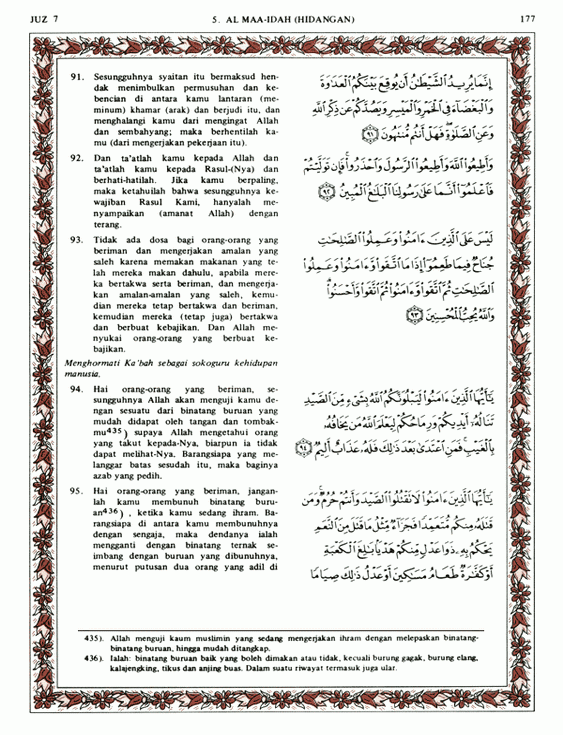 JUZ 7
5. AL MAA-IDAH (HIDANGAN)
177
91. Sesungguhnya syaitan itu bermaksud hen-
dak menimbulkan permusuhan dan ke-
bencian di antara kamu lantaran (me-
minum) khamar (arak) dan berjudi itu, dan
menghalangi kamu dari mengingat Allah
dan sembahyang; maka berhentilah ka-
mu (dari mengerjakan pekerjaan itu).
92. Dan ta'atlah kamu kepada Allah dan
ta'atlah kamu kepada Rasul-(Nya) dan
berhati-hatilah. Jika kamu berpaling,
maka ketahuilah bahwa sesungguhnya ke-
wajiban Rasul Kami, hanyalah me-
nyampaikan (amanat Allah) dengan
terang.
93. Tidak ada dosa bagi orang-orang yang
beriman dan mengerjakan amalan yang
saleh karena memakan makanan yang te-
lah mereka makan dahulu, apabila mere-
ka bertakwa serta beriman, dan mengerja-
kan amalan-amalan yang saleh, kemu-
dian mereka tetap bertakwa dan beriman,
kemudian mereka (tetap juga) bertakwa
dan berbuat kebajikan. Dan Allah me-
nyukai orang-orang yang berbuat ke-
bajikan.
Menghormati Ka'bah sebagai sokoguru kehidupan
manusia.
94. Hai orang-orang yang beriman, se-
sungguhnya Allah akan menguji kamu de-
ngan sesuatu dari binatang buruan yang
mudah didapat oleh tangan dan tombak-
mu435) supaya Allah mengetahui orang
yang takut kepada-Nya, biarpun ia tidak
dapat melihat-Nya. Barangsiapa yang me-
langgar batas sesudah itu, maka baginya
azab yang pedih.
95. Hai orang-orang yang beriman, jangan-
lah kamu membunuh binatang buru-
an436), ketika kamu sedang ihram. Ba-
rangsiapa di antara kamu membunuhnya
dengan sengaja, maka dendanya ialah
mengganti dengan binatang ternak se-
imbang dengan buruan yang dibunuhnya,
menurut putusan dua orang yang adil di
إِنَّمَا يُرِيدُ الشَّيْطَٰنُ أَن يُوقِعَ بَيْنَكُمُ الْعَدَٰوَةَ
وَالْبَغْضَآءَ فِى الْخَمْرِ وَالْمَيْسِرِ وَيَصُدَّكُمْ عَن ذِكْرِ اللَّهِ
وَعَنِ الصَّلَوٰةِ فَهَلْ أَنتُم مُّنتَهُونَ ﴿٩١﴾
وَأَطِيعُوا اللَّهَ وَأَطِيعُوا الرَّسُولَ وَاحْذَرُوا فَإِن تَوَلَّيْتُمْ
فَاعْلَمُوٓا أَنَّمَا عَلَىٰ رَسُولِنَا الْبَلَٰغُ الْمُبِينُ ﴿٩٢﴾
لَيْسَ عَلَى الَّذِينَ ءَامَنُوا وَعَمِلُوا الصَّٰلِحَٰتِ
جُنَاحٌ فِيمَا طَعِمُوٓا إِذَا مَا اتَّقَوا وَّءَامَنُوا وَعَمِلُوا
الصَّٰلِحَٰتِ ثُمَّ اتَّقَوا وَّءَامَنُوا ثُمَّ اتَّقَوا وَّأَحْسَنُوا
وَاللَّهُ يُحِبُّ الْمُحْسِنِينَ ﴿٩٣﴾
يَٰٓأَيُّهَا الَّذِينَ ءَامَنُوا لَيَبْلُوَنَّكُمُ اللَّهُ بِشَىْءٍ مِّنَ الصَّيْدِ
تَنَالُهُۥٓ أَيْدِيكُمْ وَرِمَاحُكُمْ لِيَعْلَمَ اللَّهُ مَن يَخَافُهُۥ
بِالْغَيْبِ فَمَنِ اعْتَدَىٰ بَعْدَ ذَٰلِكَ فَلَهُۥ عَذَابٌ أَلِيمٌ ﴿٩٤﴾
يَٰٓأَيُّهَا الَّذِينَ ءَامَنُوا لَا تَقْتُلُوا الصَّيْدَ وَأَنتُمْ حُرُمٌ وَمَن
قَتَلَهُۥ مِنكُم مُّتَعَمِّدًا فَجَزَآءٌ مِّثْلُ مَا قَتَلَ مِنَ النَّعَمِ
يَحْكُمُ بِهِۦ ذَوَا عَدْلٍ مِّنكُمْ هَدْيًا بَٰلِغَ الْكَعْبَةِ
أَوْ كَفَّٰرَةٌ طَعَامُ مَسَٰكِينَ أَوْ عَدْلُ ذَٰلِكَ صِيَامًا
435). Allah menguji kaum muslimin yang sedang mengerjakan ihram dengan melepaskan binatang-
binatang buruan, hingga mudah ditangkap.
436). Ialah: binatang buruan baik yang boleh dimakan atau tidak, kecuali burung gagak, burung elang,
kalajengking, tikus dan anjing buas. Dalam suatu riwayat termasuk juga ular.